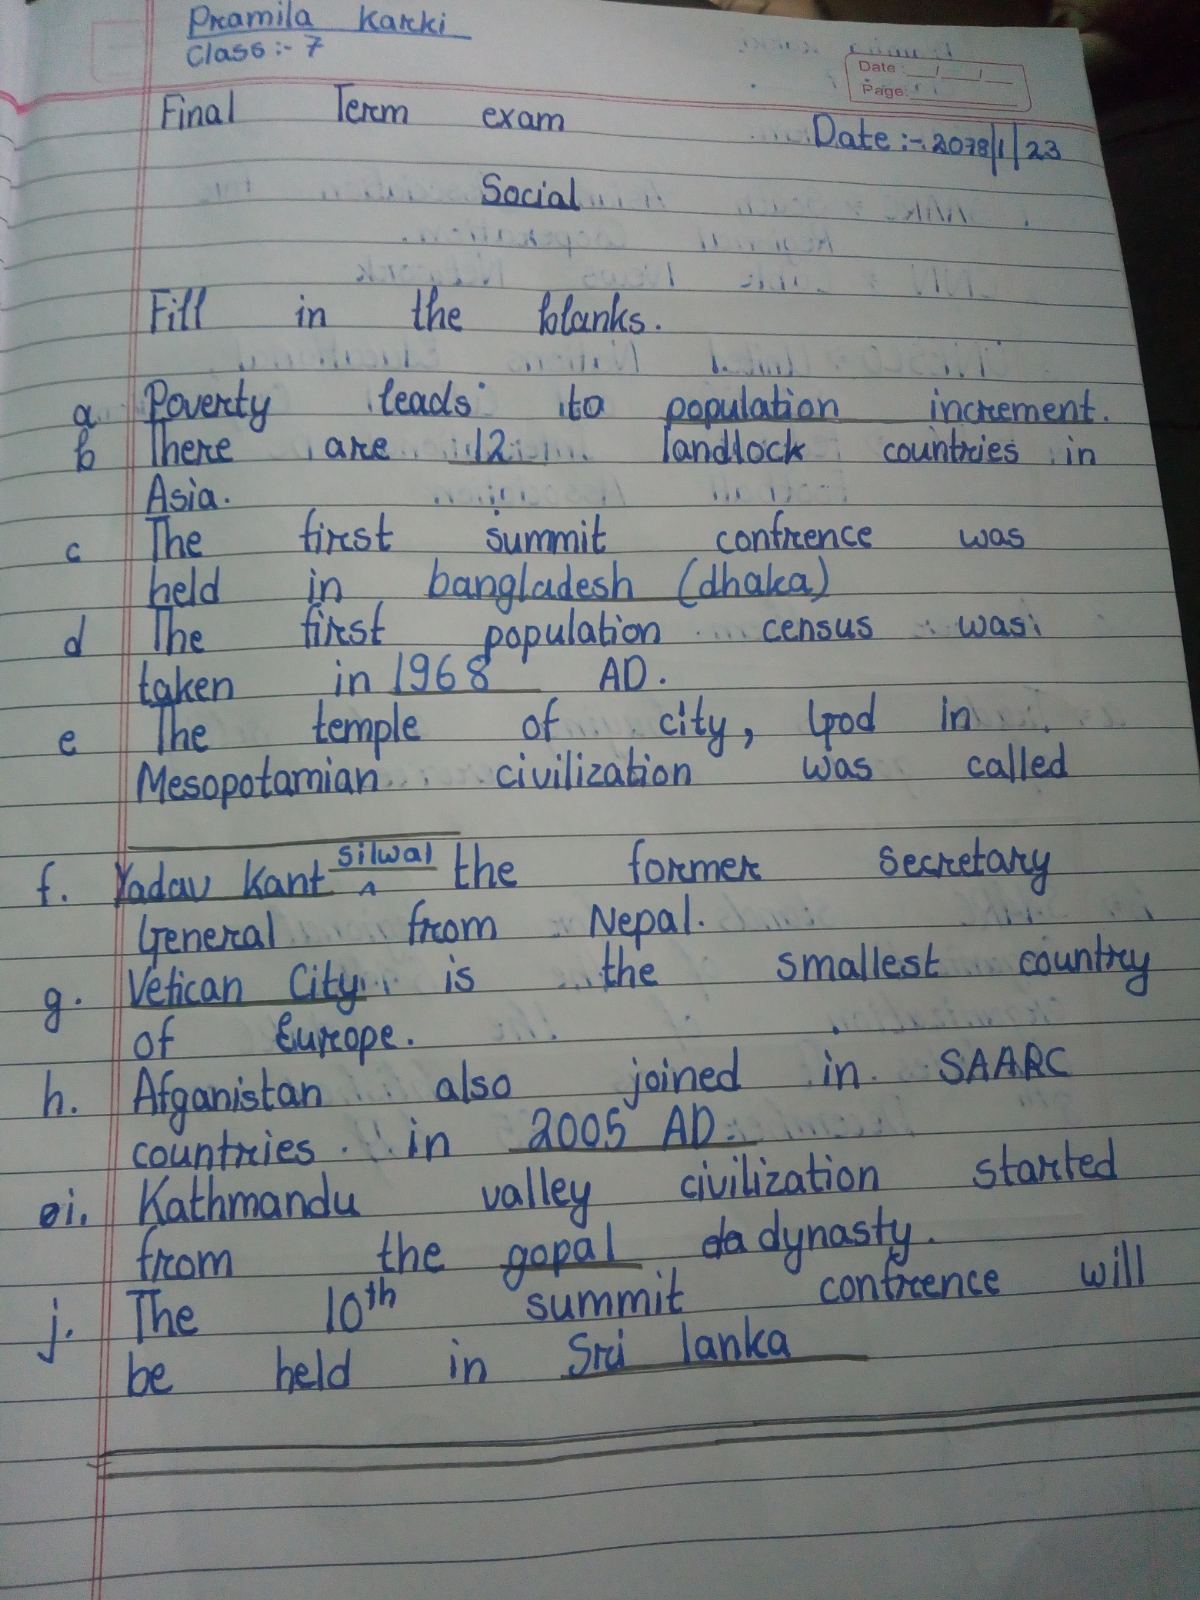 Pramila Karki
Class:- 7
Date: __/__/__
Page:
Final Term exam
Date:- 2078/1/23
Social
Fill in the blanks.
a Poverty leads to population increment.
b There are 12 landlock countries in
Asia.
c The first summit confrence was
held in bangladesh (dhaka)
d The first population census was
taken in 1968 AD.
e The temple of city, God in
Mesopotamian civilization was called
f. Yadav Kant Silwal the former secretary
General from Nepal.
g. Vetican City is the smallest country
of Europe.
h. Afganistan also joined in SAARC
countries in 2005 AD.
i. Kathmandu valley civilization started
from the gopal da dynasty.
j. The 10th summit confrence will
be held in Sri lanka